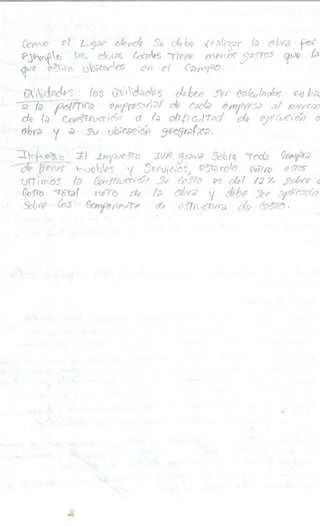 Como el Lugar donde Se debe realizar la obra por
Ejemplo las obras locales Tiene menos gastos que la
que estan ubicados en el Campo.
Utilidades: los Utilidades deben ser calculados en ba
a la politica empresarial de cada empresa al mercad
de la Construcción a la dificultad de ejecución
obra y a su ubicación geográfica.
Impuesto El Impuesto IVA grava Sobre Toda Compra
de bienes muebles y Servicios, estando entre estos
Ultimos la Construcción Su costo es del 12% Sobre
Costo Total neto de la obra y debe Ser aplicado
Sobre los Componente de estructura de costo.